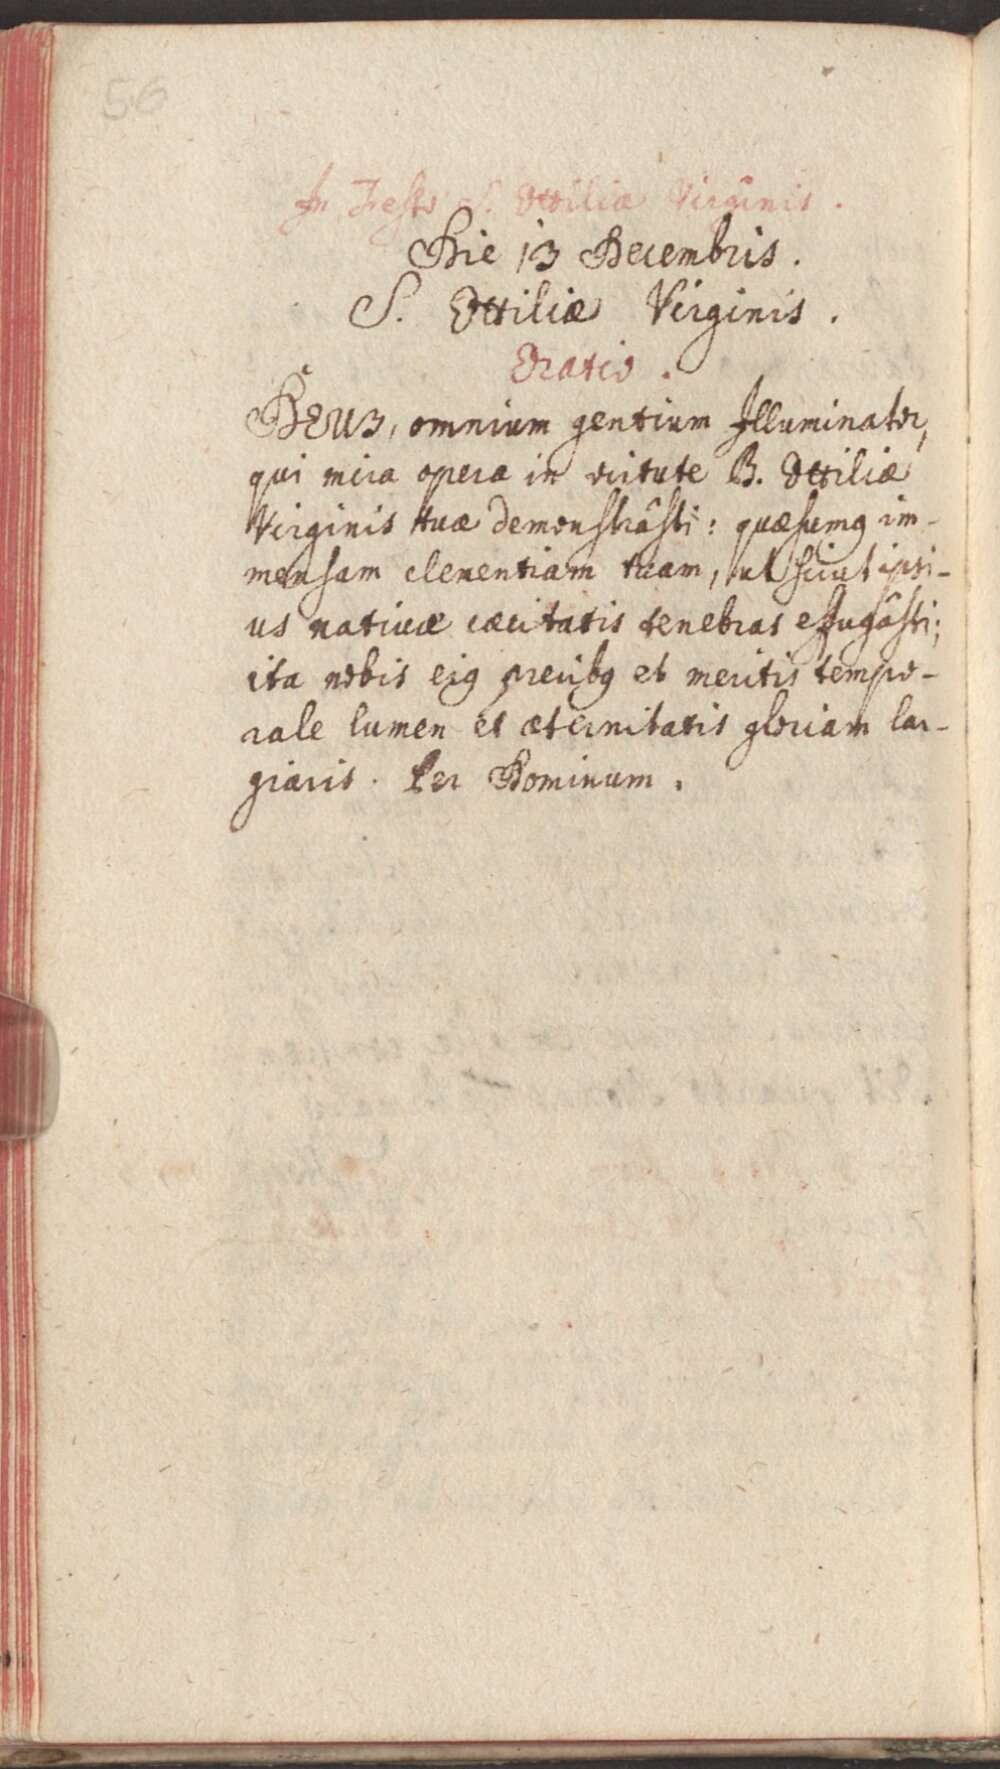 56
In Festo S. Ottiliæ Virginis.
Die 13 Decembris.
S. Ottiliæ Virginis.
Oratio.
Deus, omnium gentium Illuminator,
qui mira opera in virtute B. Ottiliæ
Virginis tuæ demonstrâsti: quæsumꝰ im-
mensam clementiam tuam, ut sicut ipsi-
us nativæ cæcitatis tenebras effugâsti;
ita nobis eiꝰ precibꝰ et meritis tempo-
rale lumen et æternitatis gloriam lar-
giaris. Per Dominum.